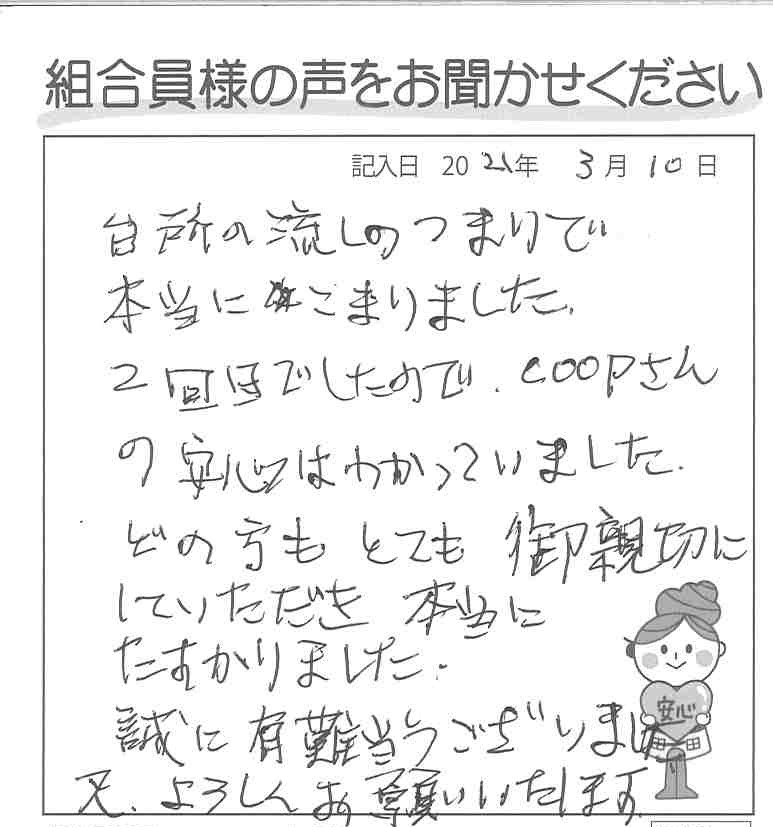 組合員様の声をお聞かせください
記入日 2021年 3月10日
台所の流しのつまりで
本当に こまりました.
2回目でしたので、COOPさん
の安心はわかっていました.
どの方も とても 御親切に
していただき 本当に
たすかりました.
誠に有難当うございました
又、よろしくお願いいたします.
安心